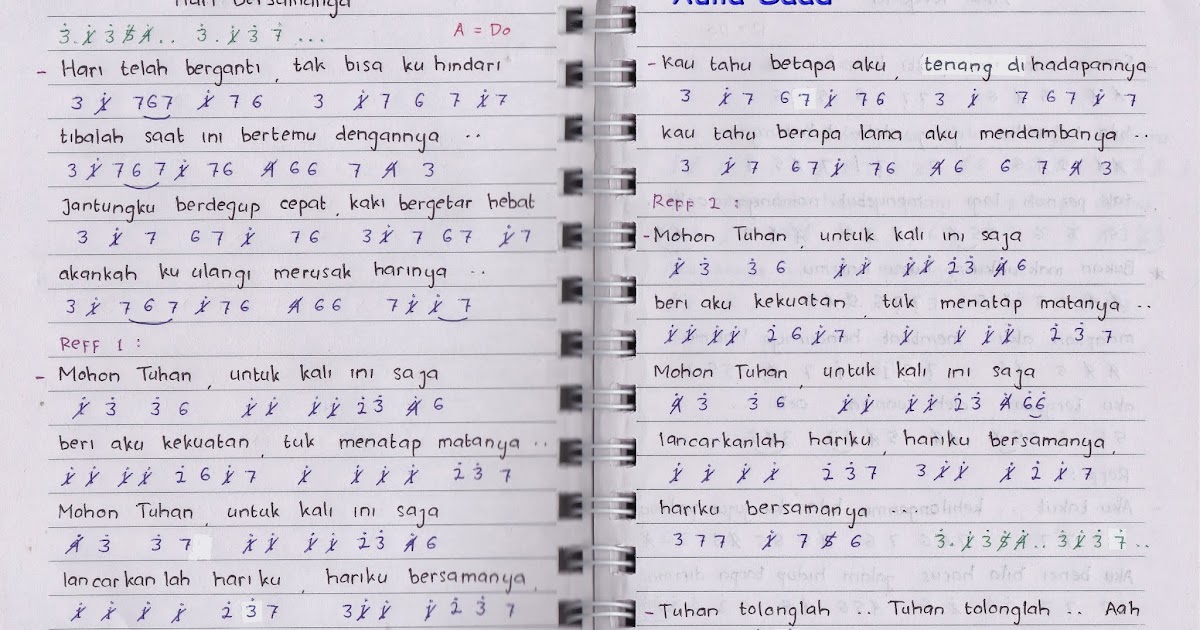 Hari Bersamanya
3̇.1̸̇ 3̇ 5̸ 4̸.. 3̇.1̸̇ 3̇ 7̇ ... A = Do
- Hari telah berganti, tak bisa ku hindari
3 1̸̇ 767 1̸̇ 76 3 1̸̇ 7 6 7 1̸̇7
tibalah saat ini bertemu dengannya ..
3 1̸̇ 7 6 7 1̸̇ 76 4̸ 66 7 4̸ 3
Jantungku berdegup cepat, kaki bergetar hebat
3 1̸̇ 7 67 1̸̇ 76 3 1̸̇ 7 67 1̸̇7
akankah ku ulangi merusak harinya ..
3 1̸̇ 7 6 7 1̸̇ 76 4̸ 66 7 1̸̇ 1̸̇ 7
Reff 1 :
- Mohon Tuhan, untuk kali ini saja
1̸̇ 3̇ 3̇ 6 1̸̇ 1̸̇ 1̸̇ 1̸̇ 2̇3̇ 4̸̇ 6
beri aku kekuatan, tuk menatap matanya ..
1̸̇ 1̸̇ 1̸̇ 1̸̇ 2̇ 6 1̸̇ 7 1̸̇ 1̸̇ 1̸̇ 1̸̇ 2̇ 3̇ 7
Mohon Tuhan, untuk kali ini saja
4̸̇ 3̇ 3̇ 7 1̸̇ 1̸̇ 1̸̇ 1̸̇ 2̇3̇ 4̸̇ 6
lancarkanlah hariku, hariku bersamanya,
1̸̇ 1̸̇ 1̸̇ 1̸̇ 2̇ 3̇ 7 3 1̸̇ 1̸̇ 1̸̇ 2̇ 3̇ 7
- Kau tahu betapa aku, tenang di hadapannya
3 1̸̇ 7 67 1̸̇ 76 3 1̸̇ 7 67 1̸̇ 7
kau tahu berapa lama aku mendambanya ..
3 1̸̇ 7 67 1̸̇ 76 4̸ 6 6 7 4̸ 3
Reff 2 :
- Mohon Tuhan, untuk kali ini saja
1̸̇ 3̇ 3̇ 6 1̸̇ 1̸̇ 1̸̇ 1̸̇ 2̇3̇ 4̸̇ 6
beri aku kekuatan, tuk menatap matanya ..
1̸̇ 1̸̇ 1̸̇ 1̸̇ 2̇ 6 1̸̇ 7 1̸̇ 1̸̇ 1̸̇ 1̸̇ 2̇ 3̇ 7
Mohon Tuhan, untuk kali ini saja
4̸̇ 3̇ 3̇ 6 1̸̇ 1̸̇ 1̸̇ 1̸̇ 2̇3̇ 4̸̇ 6̇6̇
lancarkanlah hariku, hariku bersamanya,
1̸̇ 1̸̇ 1̸̇ 1̸̇ 2̇ 3̇ 7 3 1̸̇ 1̸̇ 1̸̇ 2̇ 1̸̇ 7
hariku bersamanya ...
3 7 7 1̸̇ 7 5̸ 6 3̇.1̸̇ 3̇ 5̸ 4̸.. 3̇ 1̸̇ 3̇ 7̇ ..
- Tuhan tolonglah .. Tuhan tolonglah .. Aah